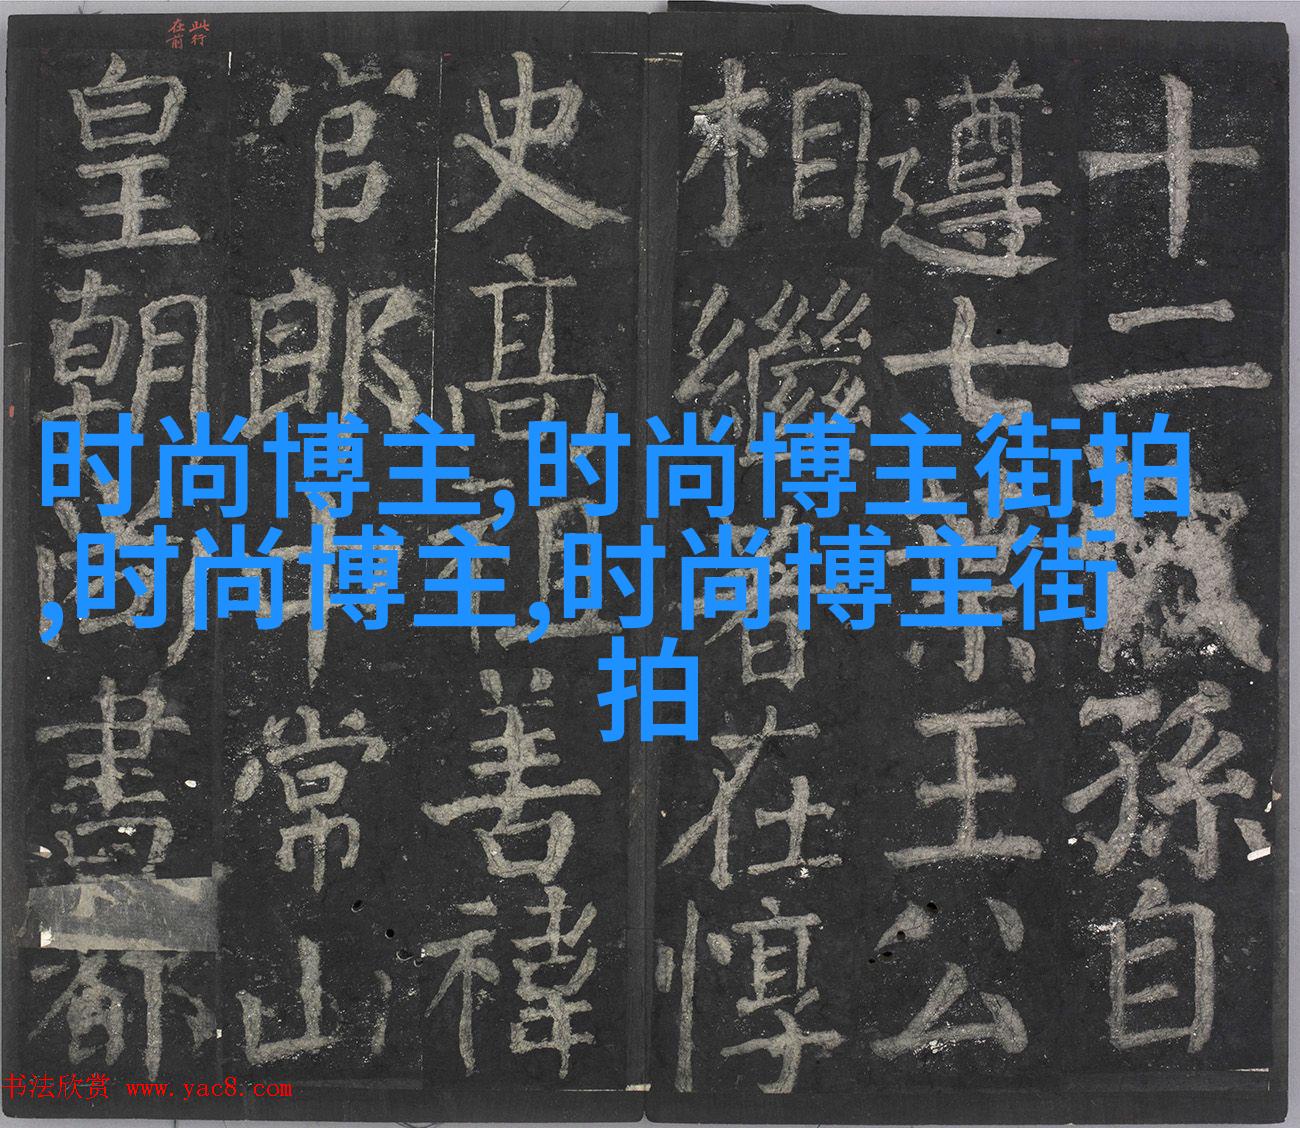 十二孫自
遵七葉王公
相繼著在惇
史高祖善禕
官郎中常山
皇朝尚書都
此行
在前
时尚博主,时尚博主街拍
,时尚博主,时尚博主街
拍
书法欣赏 www.yac8.com